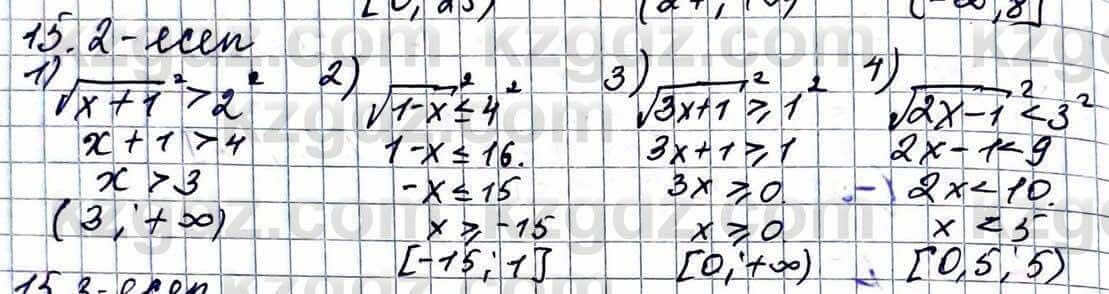 15.2-есеп
1) √x+1² > 2²
x+1>4
x>3
(3; +∞)
2) √1-x² ≤ 4²
1-x≤16.
-x≤15
x≥-15
[-15; 1]
3) √3x+1² ≥ 1²
3x+1≥1
3x≥0
x≥0
[0; +∞)
4) √2x-1² < 3²
2x-1<9
2x<10.
x<5
[0,5; 5)
kzgdz.com